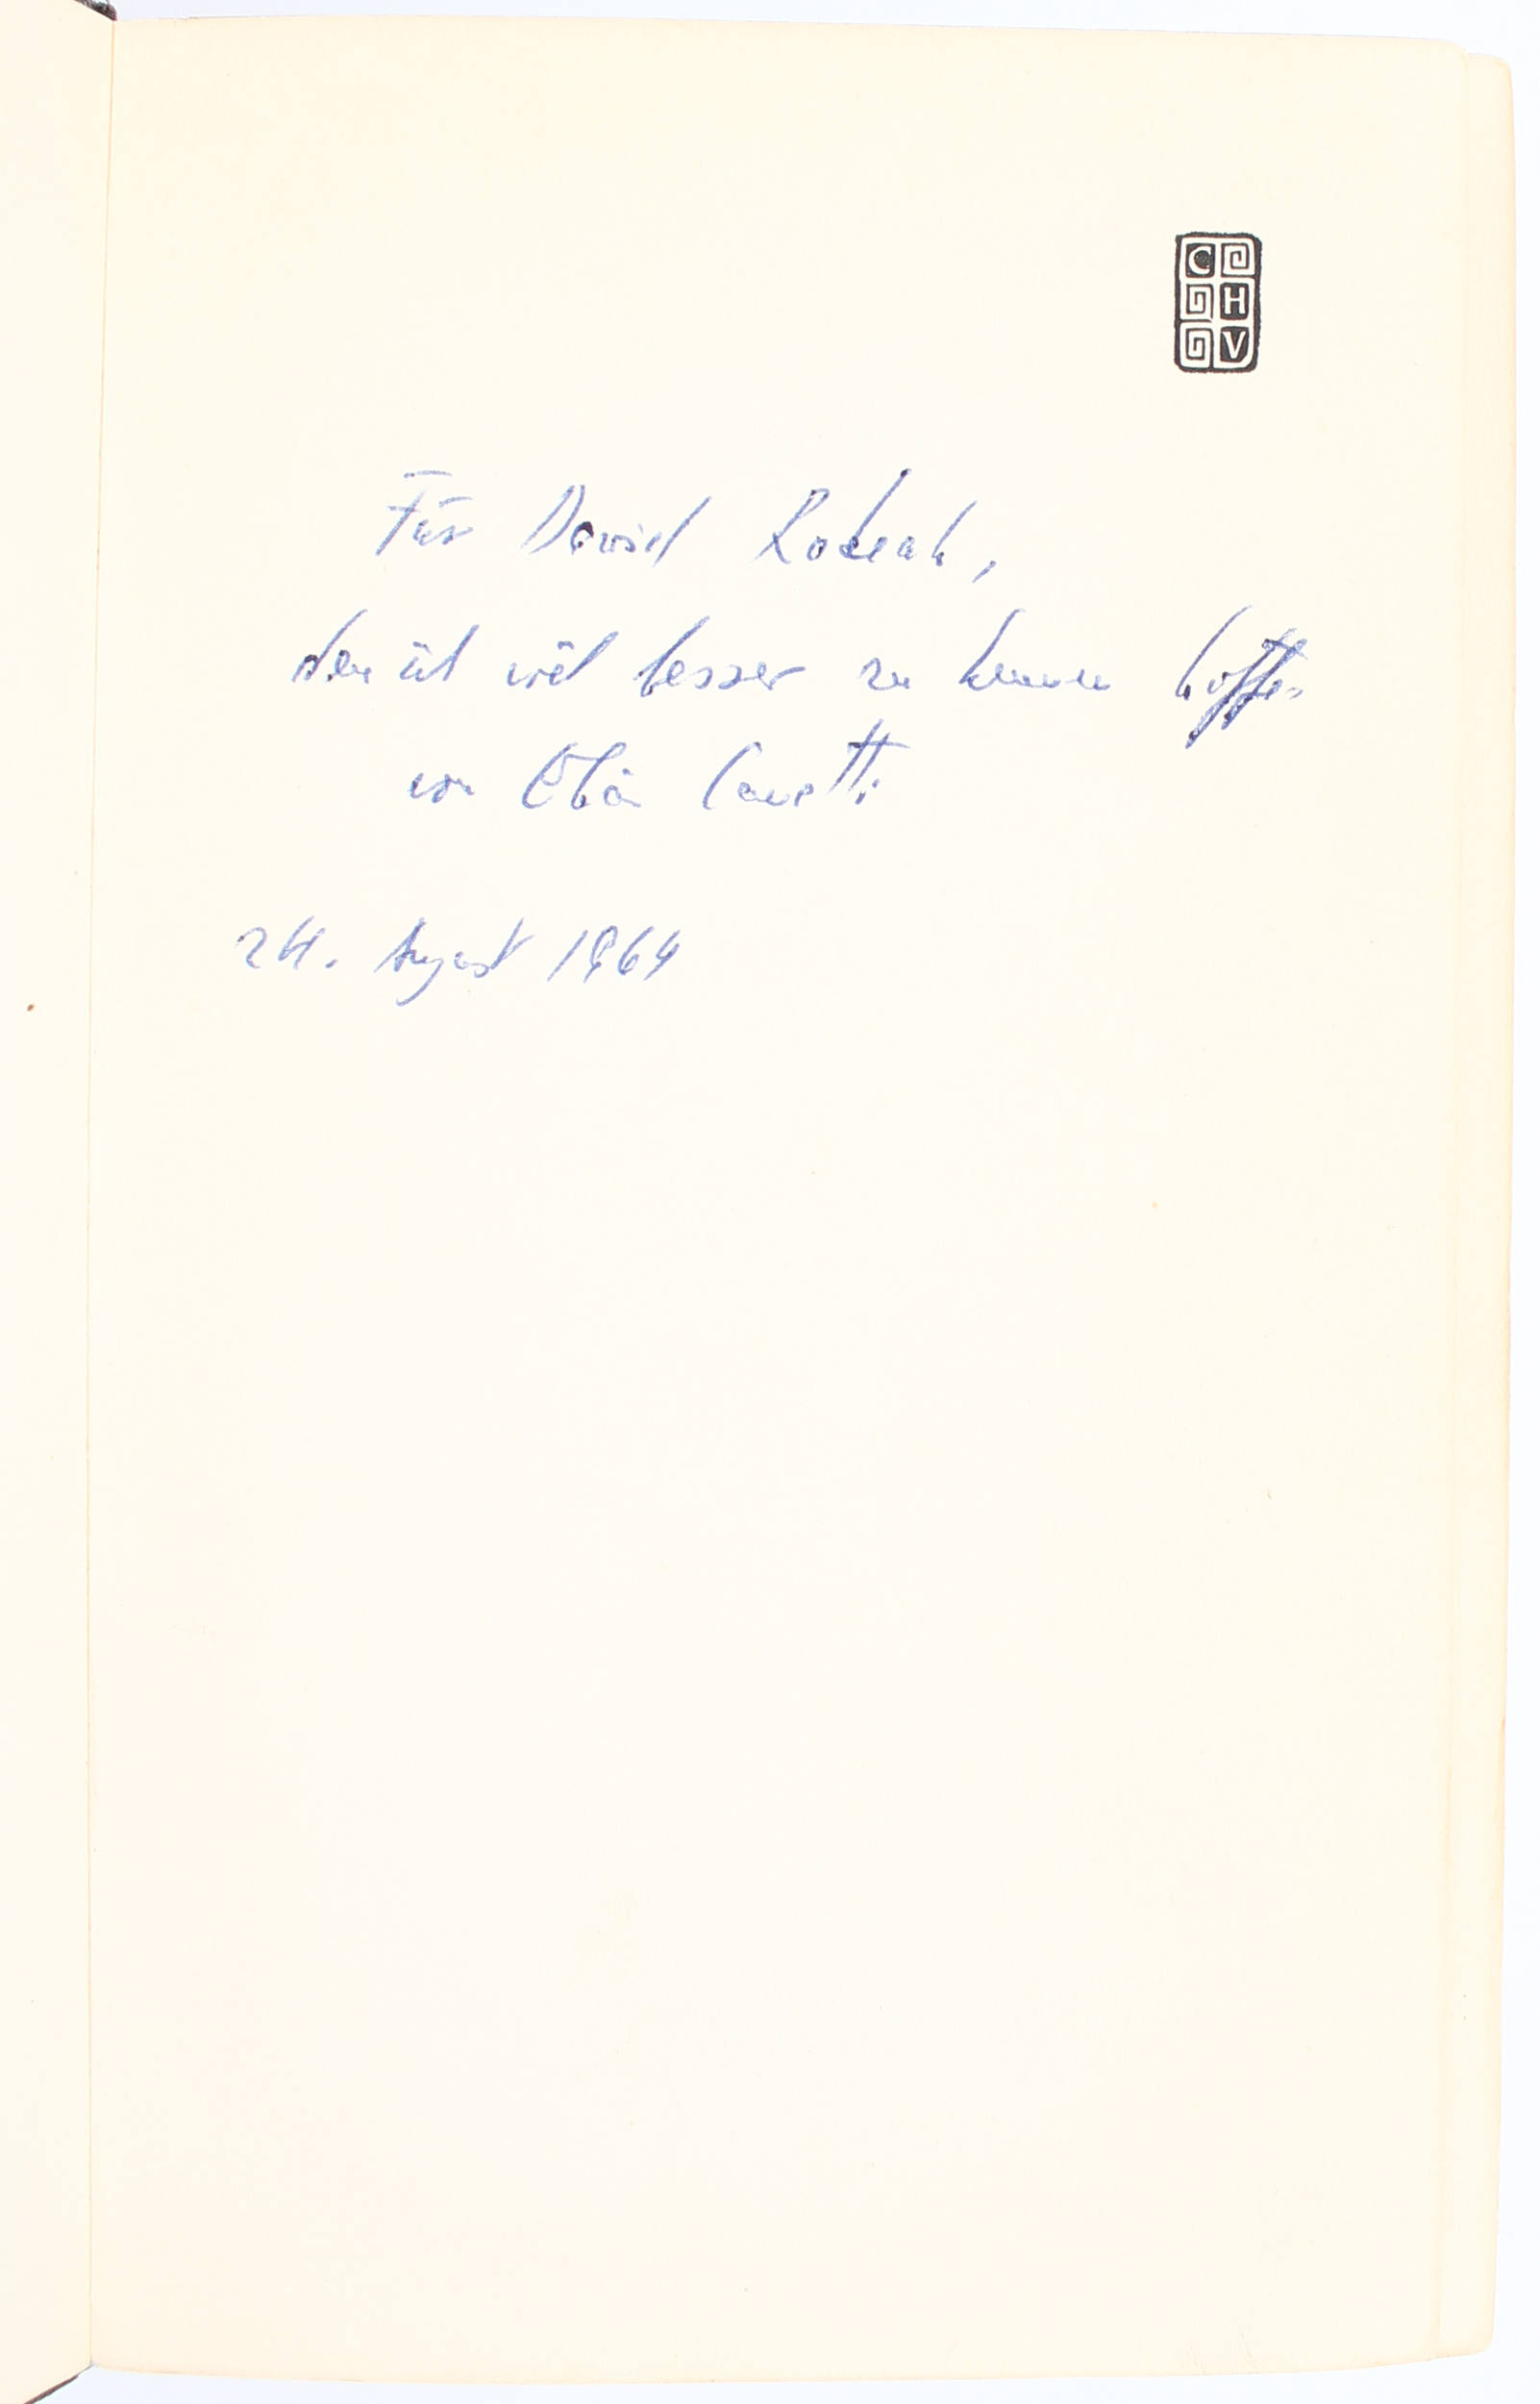 C
H
V
Für David Rokeah,
den ich viel besser zu kennen hoffe.
von Elias Canetti
24. August 1964